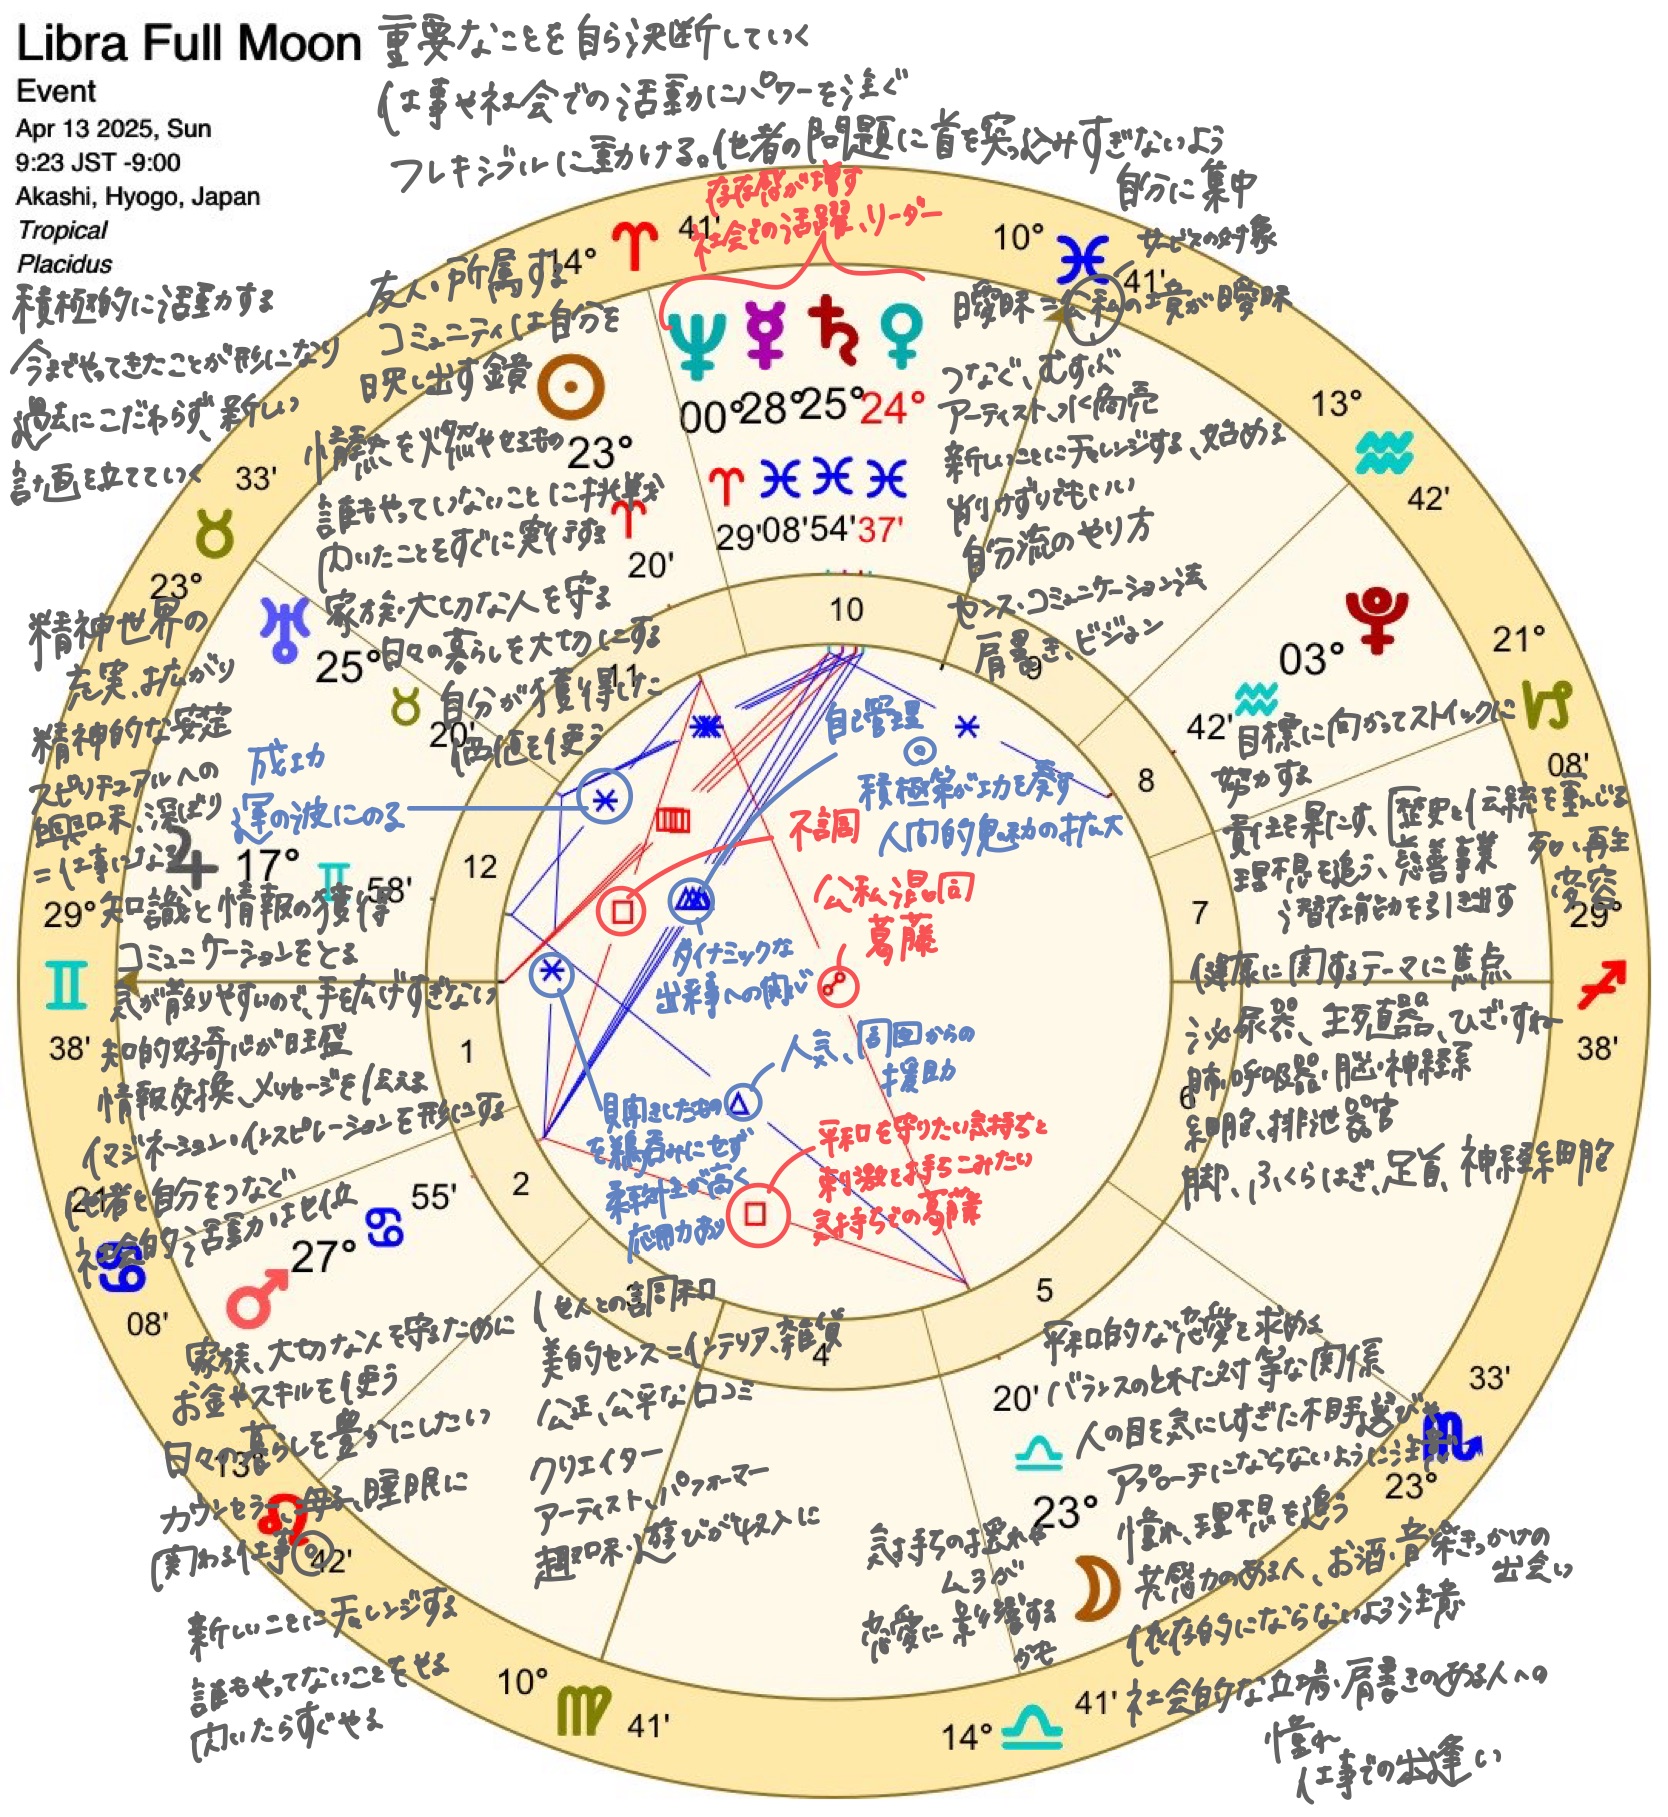 Libra Full Moon
Event
Apr 13 2025, Sun
9:23 JST -9:00
Akashi, Hyogo, Japan
Tropical
Placidus
重要なことを自ら決断していく
仕事や社会での活動にパワーを注ぐ
フレキシブルに動ける。他者の問題に首を突っ込みすぎないよう
自分に集中
存在感が増す
社会での活躍、リーダー
積極的に活動する
今までやってきたことが形になり
過去にこだわらず、新しい
計画を立てていく
友人・所属する
コミュニティは自分を
映し出す鏡
情熱を燃やせるもの
誰もやっていないことに挑戦
閃いたことをすぐに実行する
家族・大切な人を守る
日々の暮らしを大切にする
自分が獲得した
価値を使う
サービスの対象
曖昧=公私の境が曖昧
つなぐ、むすぶ
アーティスト、水商売
新しいことにチャレンジする、始める
荒削りでもいい
自分流のやり方
センス・コミュニケーション法
肩書き、ビジョン
14° 41'
10° 41'
13° 42'
21° 08'
29° 38'
23° 33'
14° 41'
10° 41'
13° 42'
21° 08'
29° 38'
23° 33'
00° 28° 25° 24°
29' 08' 54' 37'
23° 20'
25° 20'
17° 58'
27° 55'
23° 20'
03° 42'
10
11
12
1
2
4
5
6
7
8
9
精神世界の
充実、拡がり
精神的な安定
スピリチュアルへの
興味、深ぼり
=仕事になる
成功
運の波にのる
自己管理◎
積極策が功を奏す
人間的魅力の拡大
不調
公私混同
葛藤
ダイナミックな
出来事への関心
人気、周囲からの
援助
見聞きしたもの
を鵜呑みにせず
柔軟性が高く
応用力あり
平和を守りたい気持ちと
刺激を持ちこみたい
気持ちでの葛藤
目標に向かってストイックに
努力する
責任を果たす、歴史と伝統を重んじる
理想を追う、慈善事業
潜在能力を引き出す
死、再生
変容
健康に関するテーマに焦点
泌尿器、生殖器、ひざ・すね
肺・呼吸器・脳・神経系
細胞、排泄器官
脚、ふくらはぎ、足首、神経細胞
知識と情報の獲得
コミュニケーションをとる
気が散りやすいので、手を広げすぎない
知的好奇心が旺盛
情報交換、メッセージを伝える
イマジネーション・インスピレーションを形にする
他者と自分をつなぐ
社会的な活動は上位
家族、大切な人を守るために
お金やスキルを使う
日々の暮らしを豊かにしたい
カウンセラー、母子、睡眠に
関わる仕事◎
新しいことにチャレンジする
誰もやってないことをせる
閃いたらすぐやる
他人との調和
美的センス=インテリア、雑貨
公正、公平な口コミ
クリエイター
アーティスト、パフォーマー
趣味・遊びが収入に
平和的な恋愛を求める
バランスのとれた対等な関係
人の目を気にしすぎた相手選びや
アプローチにならないように注意
憧れ、理想を追う
共感力のある人、お酒・音楽きっかけの
出会い
依存的にならないよう注意
社会的な立場・肩書きのある人への
憧れ
仕事での出逢い
気持ちの揺れや
ムラが
恋愛に影響する
かも